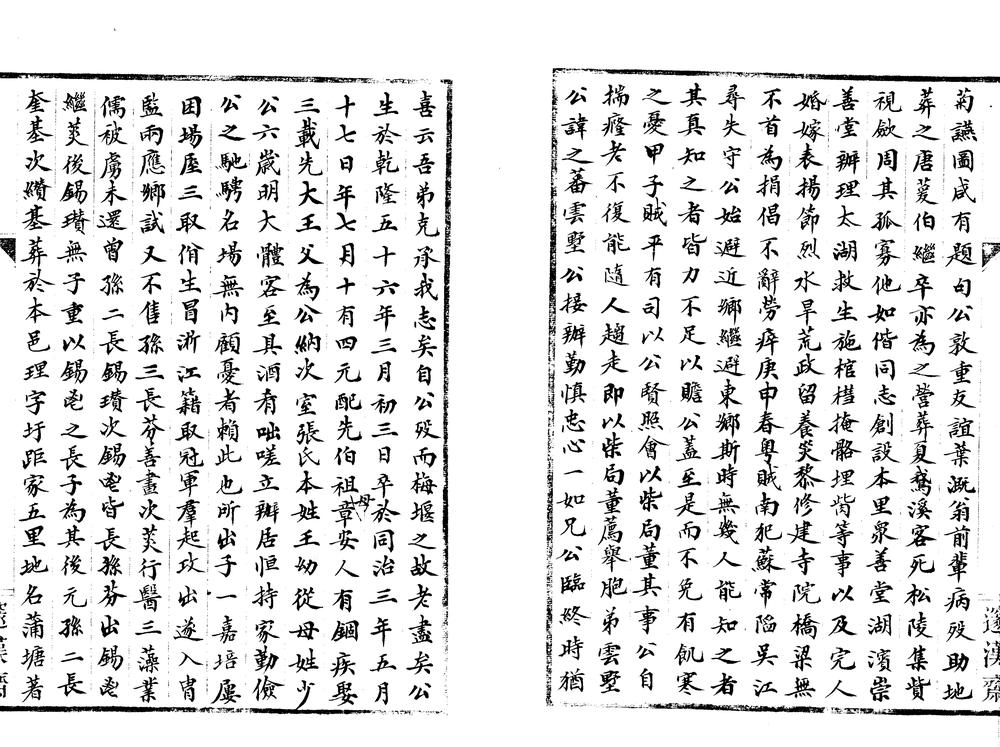 菊讌圖咸有題句公敦重友誼葉溉翁前輩病殁助地
葬之唐蓤伯繼卒亦為之營葬夏鵞溪客死松陵集貲
視歛周其孤寡他如偕同志創設本里衆善堂湖濱崇
善堂辦理太湖救生施棺槥掩骼埋胔等事以及完人
婚嫁表揚節烈水旱荒政留養災黎修建寺院橋梁無
不首為捐倡不辭勞瘁庚申春粤賊南犯蘇常陷吳江
尋失守公始避近鄉繼避東鄉斯時無幾人能知之者
其真知之者皆力不足以贍公蓋至是而不免有飢寒
之憂甲子賊平有司以公賢照會以柴局董其事公自
揣癃老不復能隨人趨走即以柴局董薦舉胞弟雲墅
公諱之蕃雲墅公接辦勤慎忠心一如兄公臨終時猶
喜云吾弟克承我志矣自公殁而梅堰之故老盡矣公
生於乾隆五十六年三月初三日卒於同治三年五月
十七日年七十有四元配先伯祖母章安人有錮疾娶
三載先大王父為公納次室張氏本姓王幼從母姓少
公六歲明大體客至具酒肴咄嗟立辦居恒持家勤儉
公之馳騁名場無內顧憂者賴此也所出子一嘉培屢
困場屋三取佾生冒浙江籍取冠軍羣起攻出遂入胄
監兩應鄉試又不售孫三長芬善畫次炗行醫三藻業
儒被虜未還曾孫二長錫瓚次錫鬯皆長孫芬出錫鬯
繼炗後錫瓚無子重以錫鬯之長子為其後元孫二長
奎基次纘基葬於本邑理字圩距家五里地名蒲塘著
邃漢齋